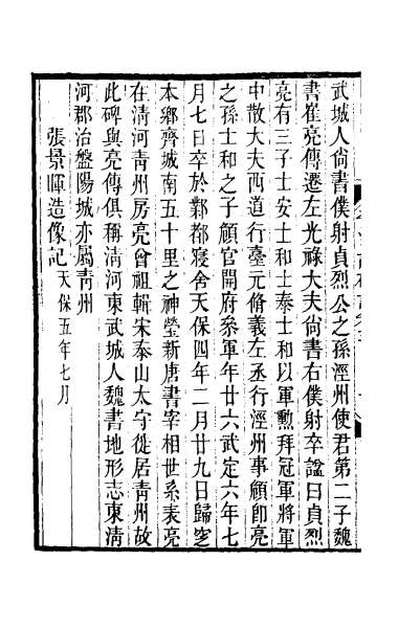 武城人尙書僕射貞烈公之孫涇州使君第二子魏
書崔亮傳遷左光祿大夫尙書右僕射卒諡曰貞烈
亮有三子士安士和士泰士和以軍勲拜冠軍將軍
中散大夫西道行臺元脩義左丞行涇州事顧卽亮
之孫士和之子顧官開府參軍年廿六武定六年七
月七日卒於鄴都寢舍天保四年二月廿九日歸窆
本鄉齊城南五十里之神塋新唐書宰相世系表亮
在淸河靑州房亮曾祖輯宋泰山太守徙居靑州故
此碑與亮傳俱稱淸河東武城人魏書地形志東淸
河郡治盤陽城亦屬靑州
張景暉造像記天保五年七月